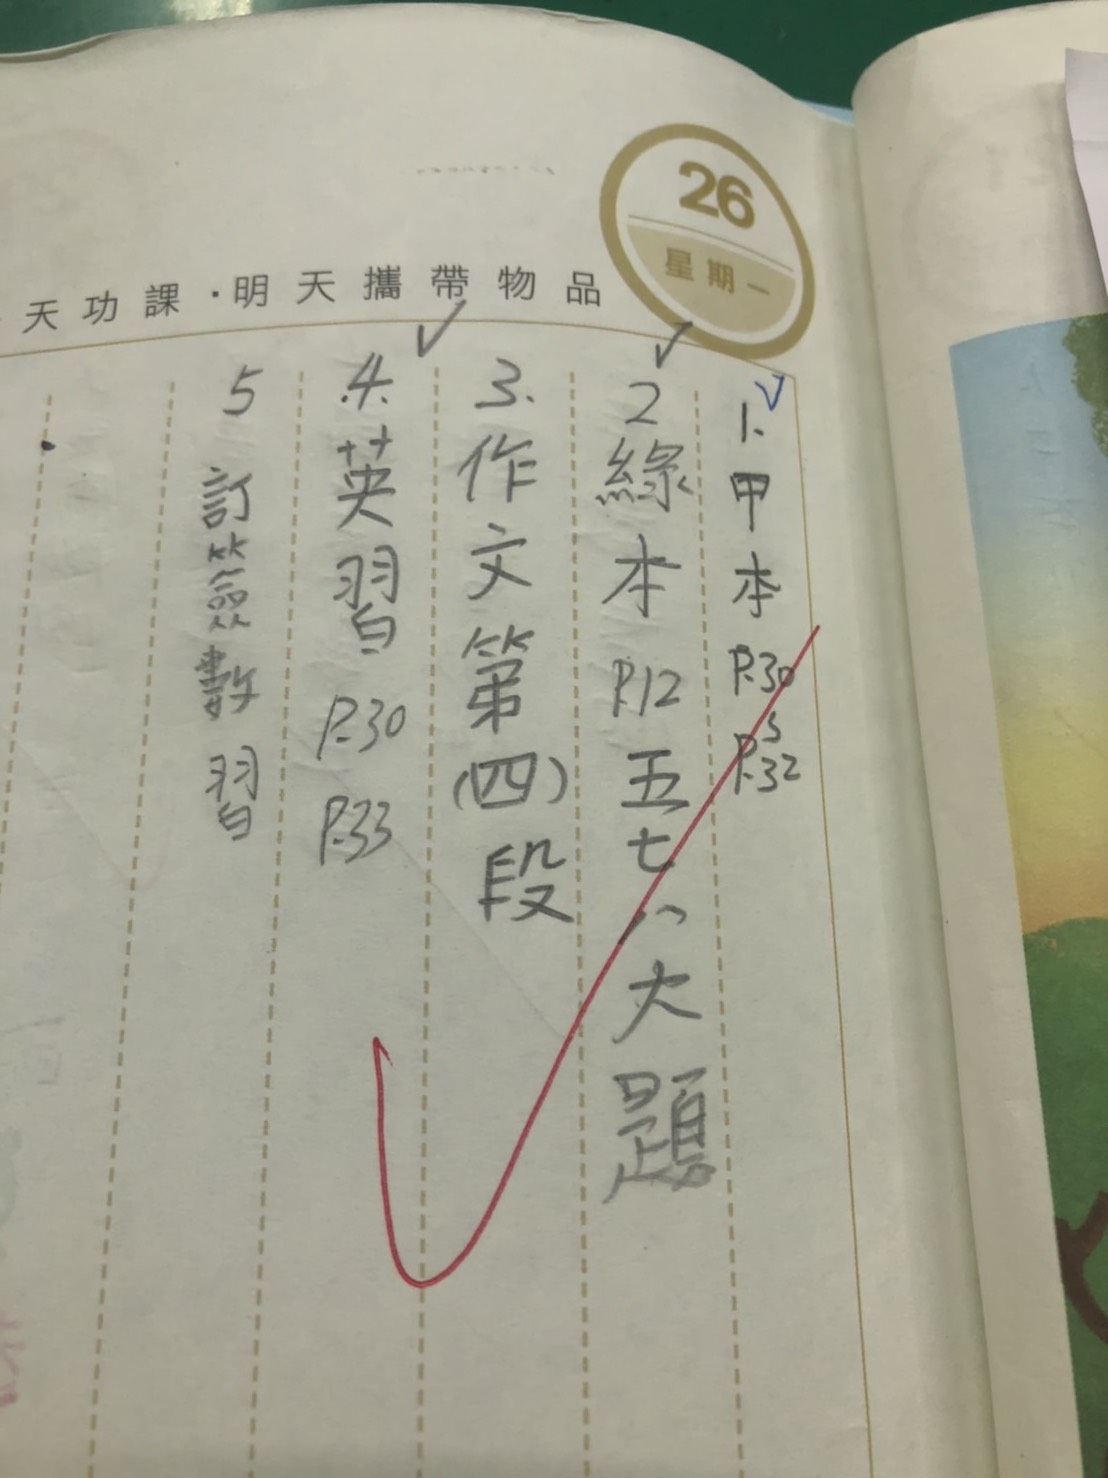 26
星期一
天功課·明天攜帶物品
1.甲本P.30~P.32
2綠本P.12五七八大題
3.作文第(四)段
4.英習P.30 P.33
5訂簽數習